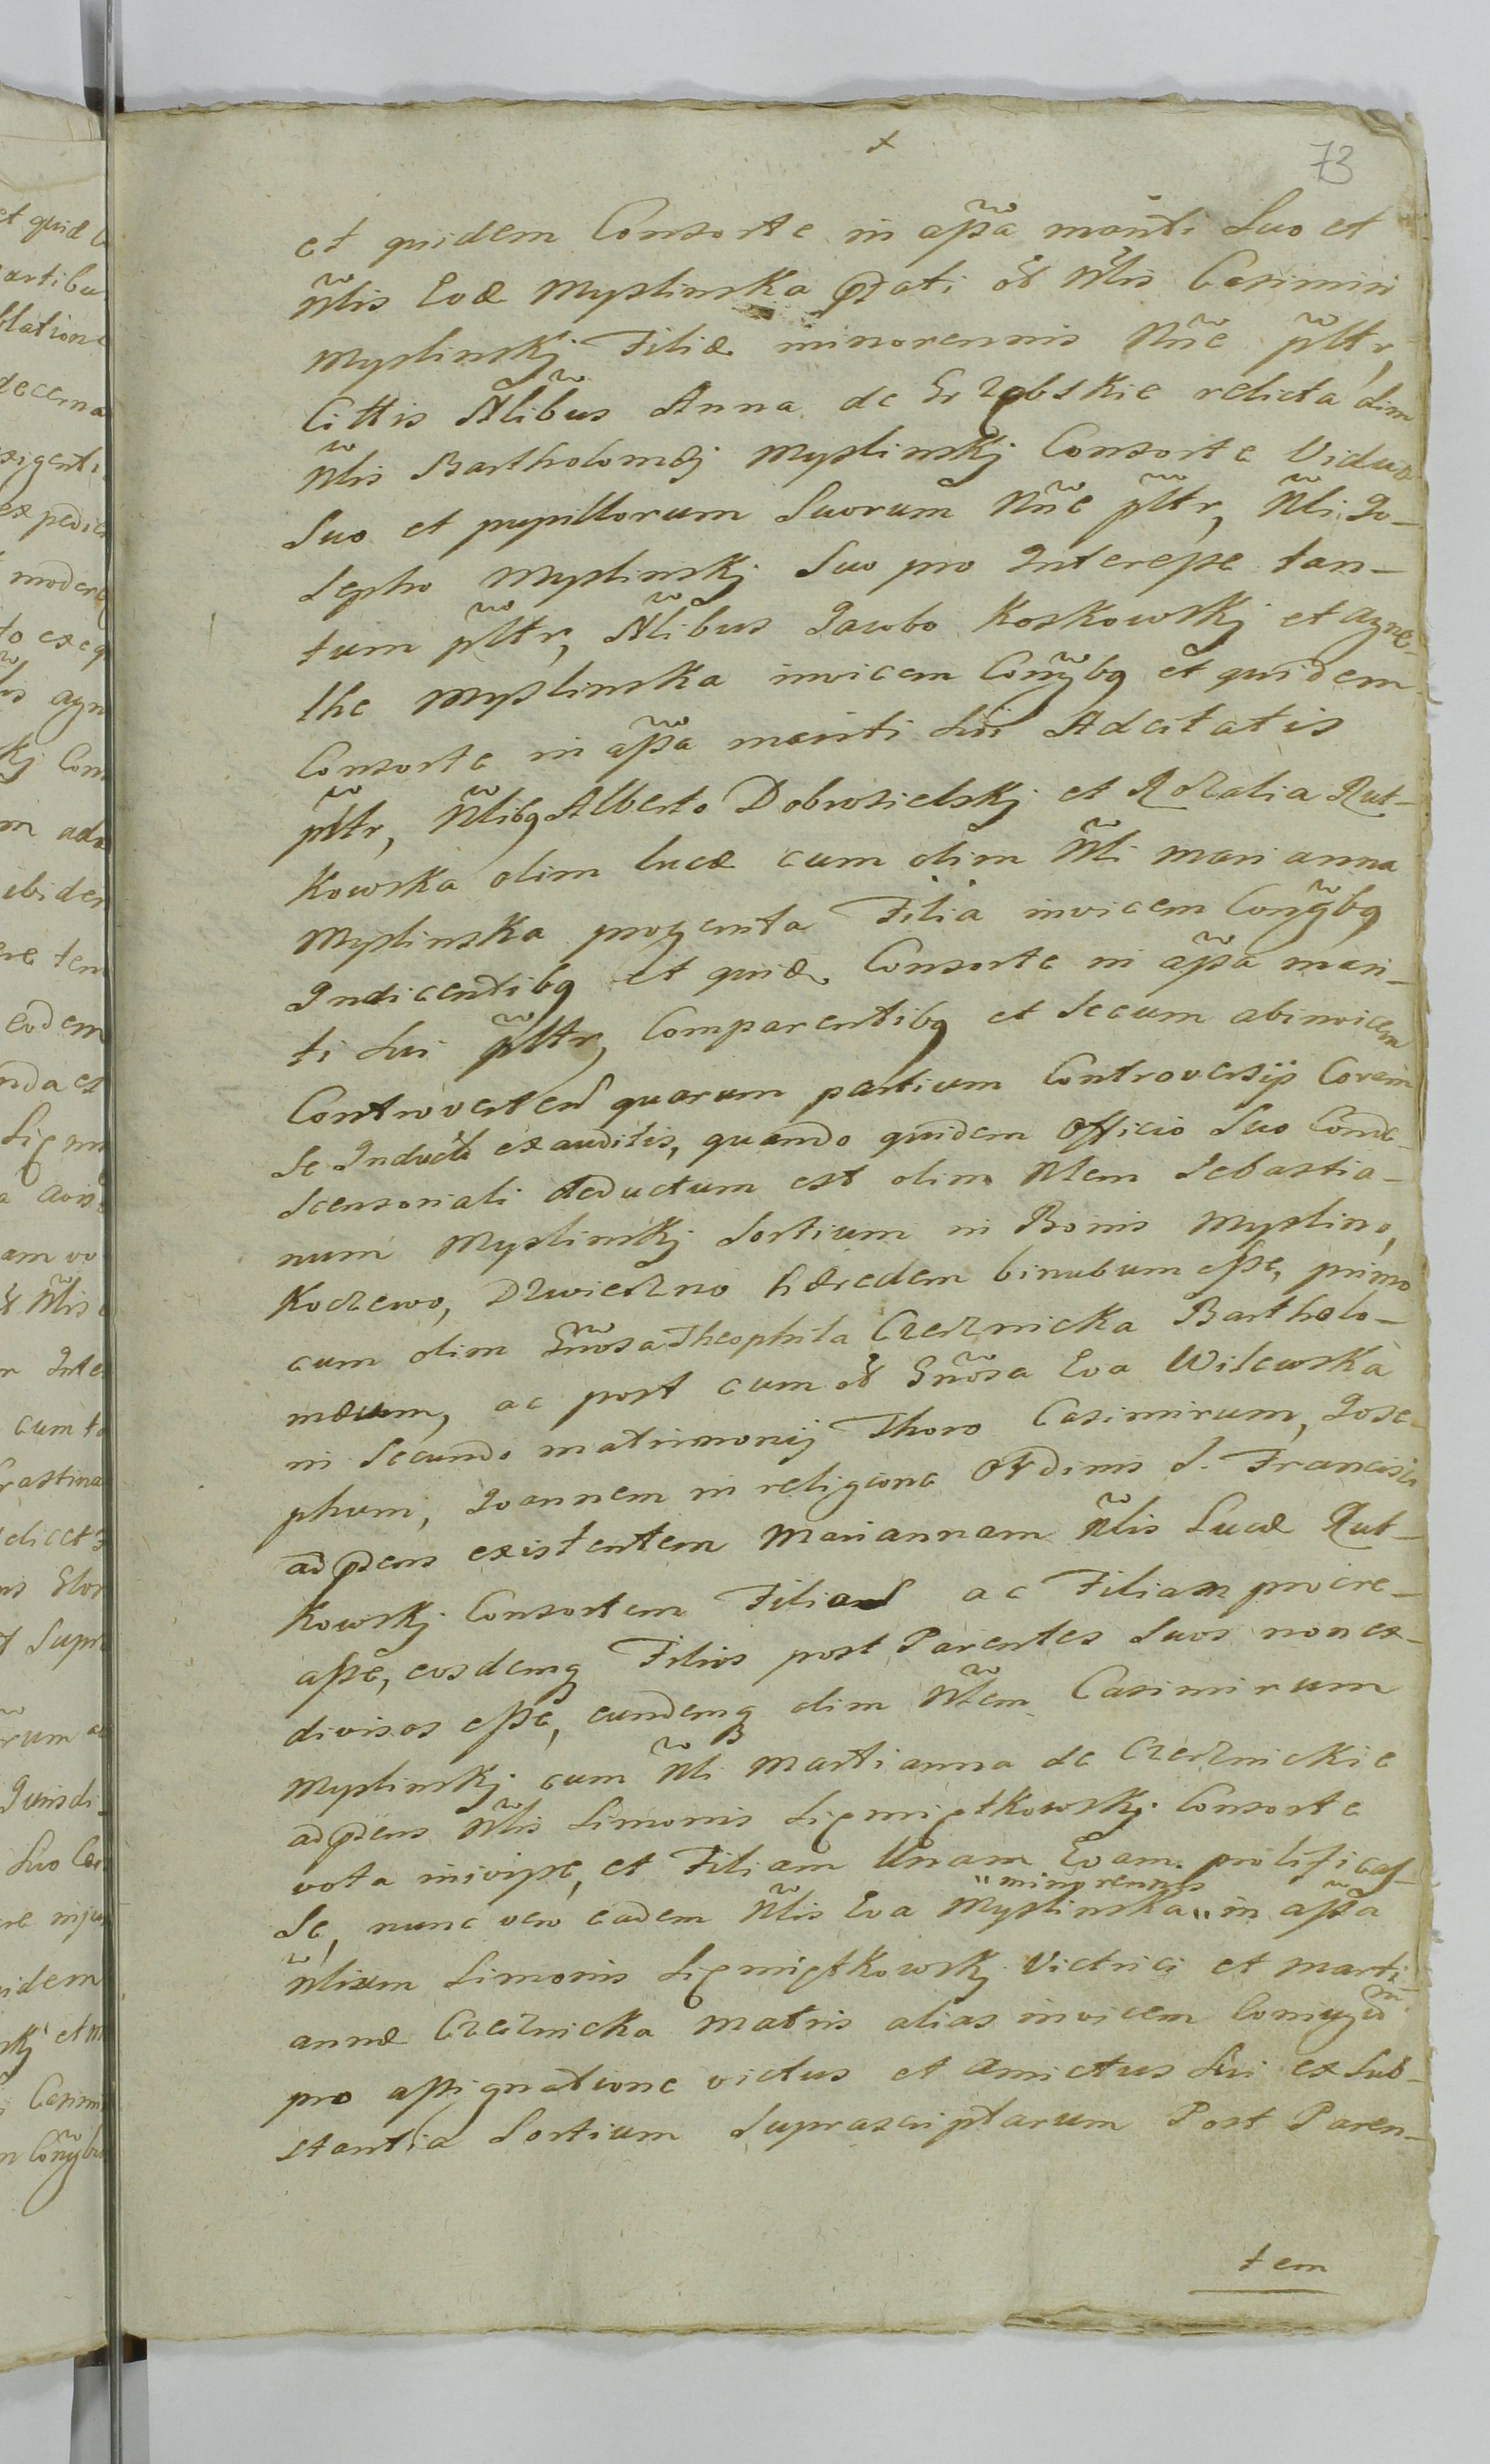 73
et quidem Consorte in assã mariti Suo et
Nlis Evæ Myslinska prdati ol Nlis Casimiri
Myslinskj Filiæ minorennis Nne psltr,
Cittis Nlibus Anna de Grzębskie relicta olim
Nlis Bartholomæj Myslinskj Consorte Vidua
Suo et pupillorum Suorum Nne psltr, Nli Jo-
sepho Myslinskj Suo pro Interesse tan-
tum psltr, Nlibus Jacobo Koskowskj et Agne-
the Myslinska invicem Conjgbq et quidem
Consorte in assã mariti Sui Adcitatis
psltr, Nlibq Alberto Dobrosielskj et Rozalia Rut-
kowska olim Lucæ cum olim Nli Marianna
Myslinska progenita Filia invicem Conjgbq
Indicentibq et quid Consorte in assã mari-
ti Sui psltr, Comparentibq et Secum abinvicem
Controverten quarum partium Controversijs Coram
Se Inductis exauditis, quando quidem Officio Suo Conde-
scensoriali deductum est olim Nlem Sebastia-
num Myslinskj Sortium in Bonis Myslino,
Koczewo, Dzwierzno hæredem binubum esse, primo
cum olim Gnosa Theophila Czerznicka Bartholo-
mæum, ac post cum ol Gnosa Eva Wilewska
in Secundo matrimonij Thoro Casimirum, Jose-
phum, Joannem in religione Ordinis S. Francisci
ad prdens existentem Mariannam Nlis Lucæ Rut-
kowskj Consortem Filios ac Filiam procre-
asse, eosdemq Filios post Parentes Suos non ex-
divisos esse, eundemq olim Nlem Casimirum
Myslinskj cum Nli Martianna de Czerznickie
ad prdens Nlis Simonis Sięmiątkowskj Consorte
vota inivisse, et Filiam Unam Evam prolificas-
se, nunc vero eadem Nlis Eva Myslinska "minorennis" in assã
Nlium Simonis Sięmiątkowskj Victrici et Marti-
annæ Czerznicka matris alias invicem Coniugum
pro assignatione victus et amictus Sui ex Sub-
stantia Sortium Suprascriptarum Post Paren-
tem